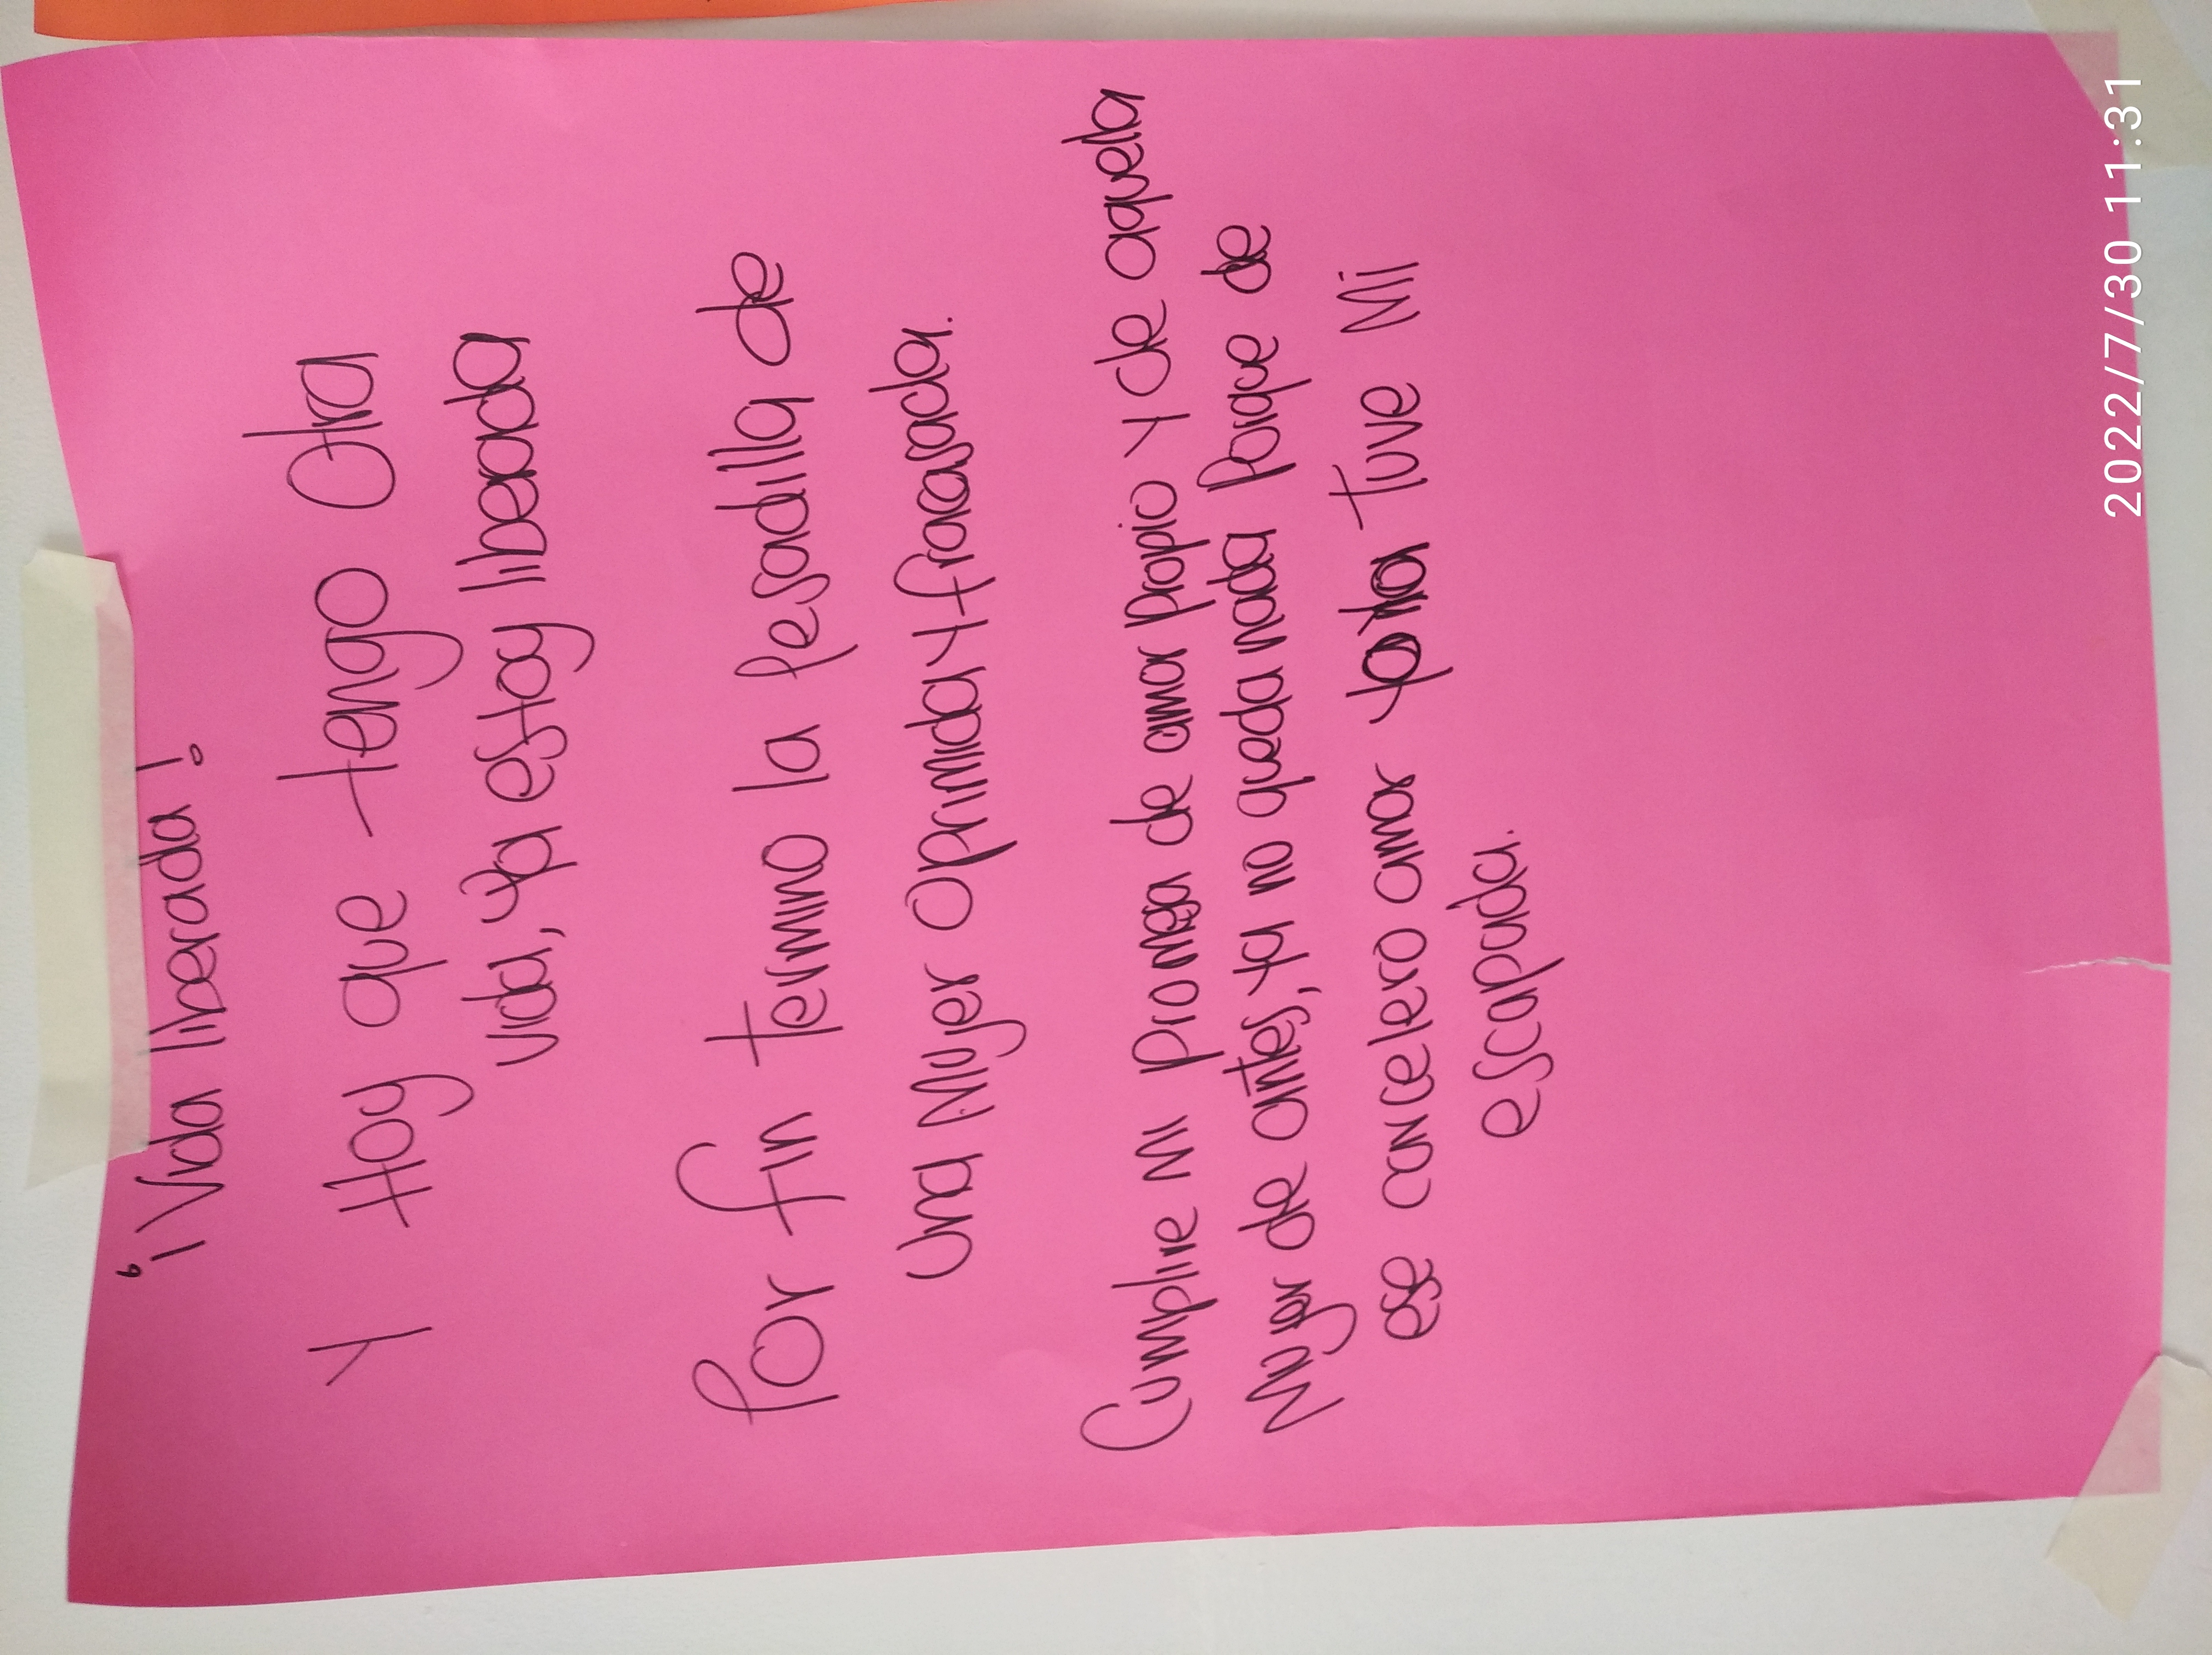 ¡Vida liberada!
Y Hoy que tengo Otra
vida, ya estoy liberada
Por fin termino la Pesadilla de
una Mujer Oprimida y fracasada.
Cumplire mi promesa de amar propio Y de aquella
Mujer de antes, ya no queda nada Porque de
ese carcelero amar tuve Mi
escapada.
2022/7/30 11:31